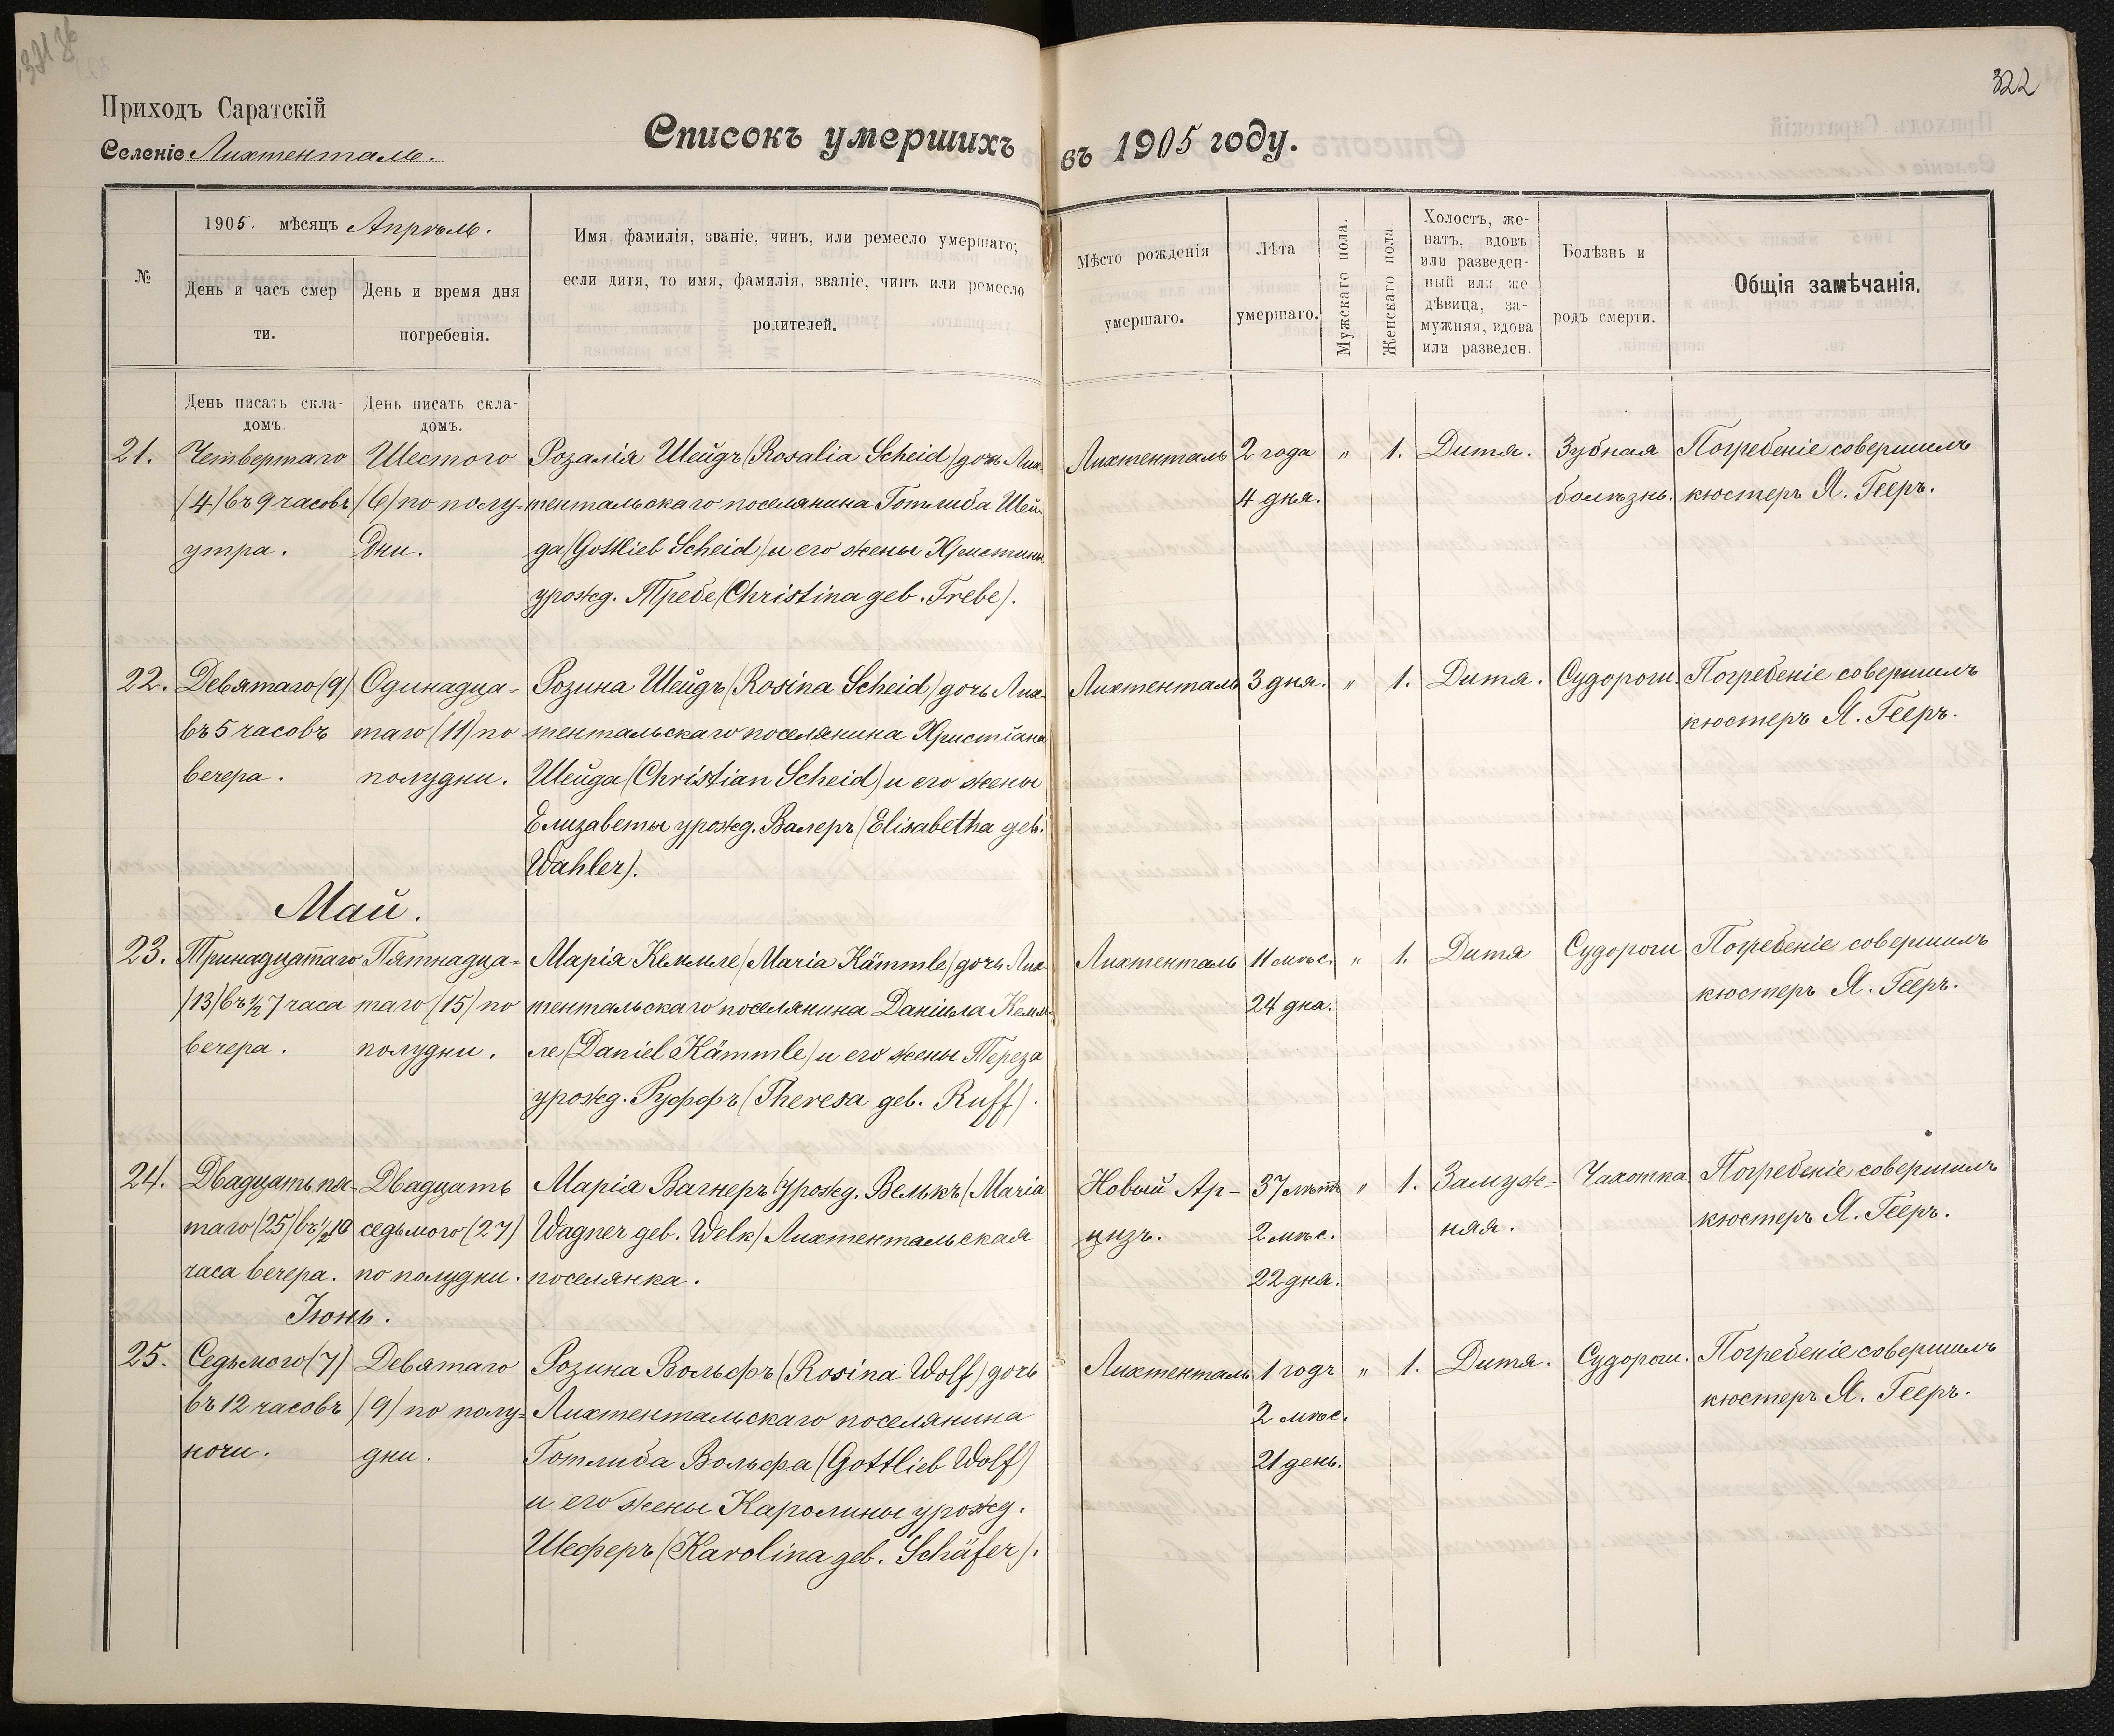 322
Приходъ Саратскій
Селеніе Лихтенталь.
Списокъ умершихъ въ 1905 году.
№
1905. мѣсяцъ Апрѣль.
День и часъ смер
ти.
День и время дня
погребенія.
Имя, фамилія, званіе, чинъ, или ремесло умершаго;
если дитя, то имя, фамилія, званіе, чинъ или ремесло
родителей.
Мѣсто рожденія
умершаго.
Лѣта
умершаго.
Мужскаго пола.
Женскаго пола
Холостъ, же-
натъ, вдовъ
или разведен-
ный или же
дѣвица, за-
мужняя, вдова
или разведен.
Болѣзнь и
родъ смерти.
Общія замѣчанія.
День писать скла-
домъ.
День писать скла-
домъ.
21.
Четвертаго
(4) въ 9 часовъ
утра.
Шестого
(6) по полу-
дни.
Розалія Шейдъ (Rosalia Scheid) дочь Лих-
тентальскаго поселянина Готлиба Шей-
да (Gottlieb Scheid) и его жены Христины
урожд. Требе (Christina geb. Trebe).
Лихтенталь
2 года
4 дня.
" 1.
Дитя.
Зубная
болѣзнь.
Погребеніе совершилъ
кюстеръ Я. Гееръ.
22.
Девятаго (9)
въ 5 часовъ
вечера.
Одинадца-
таго (11) по
полудни.
Розина Шейдъ (Rosina Scheid) дочь Лих-
тентальскаго поселянина Христіана
Шейда (Christian Scheid) и его жены
Елизаветы урожд. Валеръ (Elisabetha geb.
Wahler).
Лихтенталь
3 дня.
" 1.
Дитя.
Судороги.
Погребеніе совершилъ
кюстеръ Я. Гееръ.
Май.
23.
Тринадцатаго
(13) въ ½ 7 часа
вечера.
Пятнадца-
таго (15) по
полудни.
Марія Кеммле (Maria Kämmle) дочь Лих-
тентальскаго поселянина Даніила Кемм-
ле (Daniel Kämmle) и его жены Тереза
урожд. Руффъ (Theresa geb. Ruff).
Лихтенталь
11 мѣс.
24 дна.
" 1.
Дитя
Судороги
Погребеніе совершилъ
кюстеръ Я. Гееръ.
24.
Двадцать пя-
таго (25) въ ½ 10
часа вечера.
Двадцать
седьмого (27)
по полудни.
Марія Вагнеръ урожд. Велькъ (Maria
Wagner geb. Welk) Лихтентальская
поселянка.
Новый Ар-
цизъ.
37 лѣтъ
2 мѣс.
22 дня.
" 1.
Замуж-
няя.
Чахотка
Погребеніе совершилъ
кюстеръ Я. Гееръ.
Іюнь.
25.
Седьмого (7)
въ 12 часовъ
ночи.
Девятаго
(9) по полу-
дни.
Розина Вольфъ (Rosina Wolf) дочь
Лихтентальскаго поселянина
Готлиба Вольфа (Gottlieb Wolf)
и его жены Каролины урожд.
Шеферъ (Karolina geb. Schäfer).
Лихтенталь
1 годъ
2 мѣс.
21 день.
" 1.
Дитя.
Судороги.
Погребеніе совершилъ
кюстеръ Я. Гееръ.